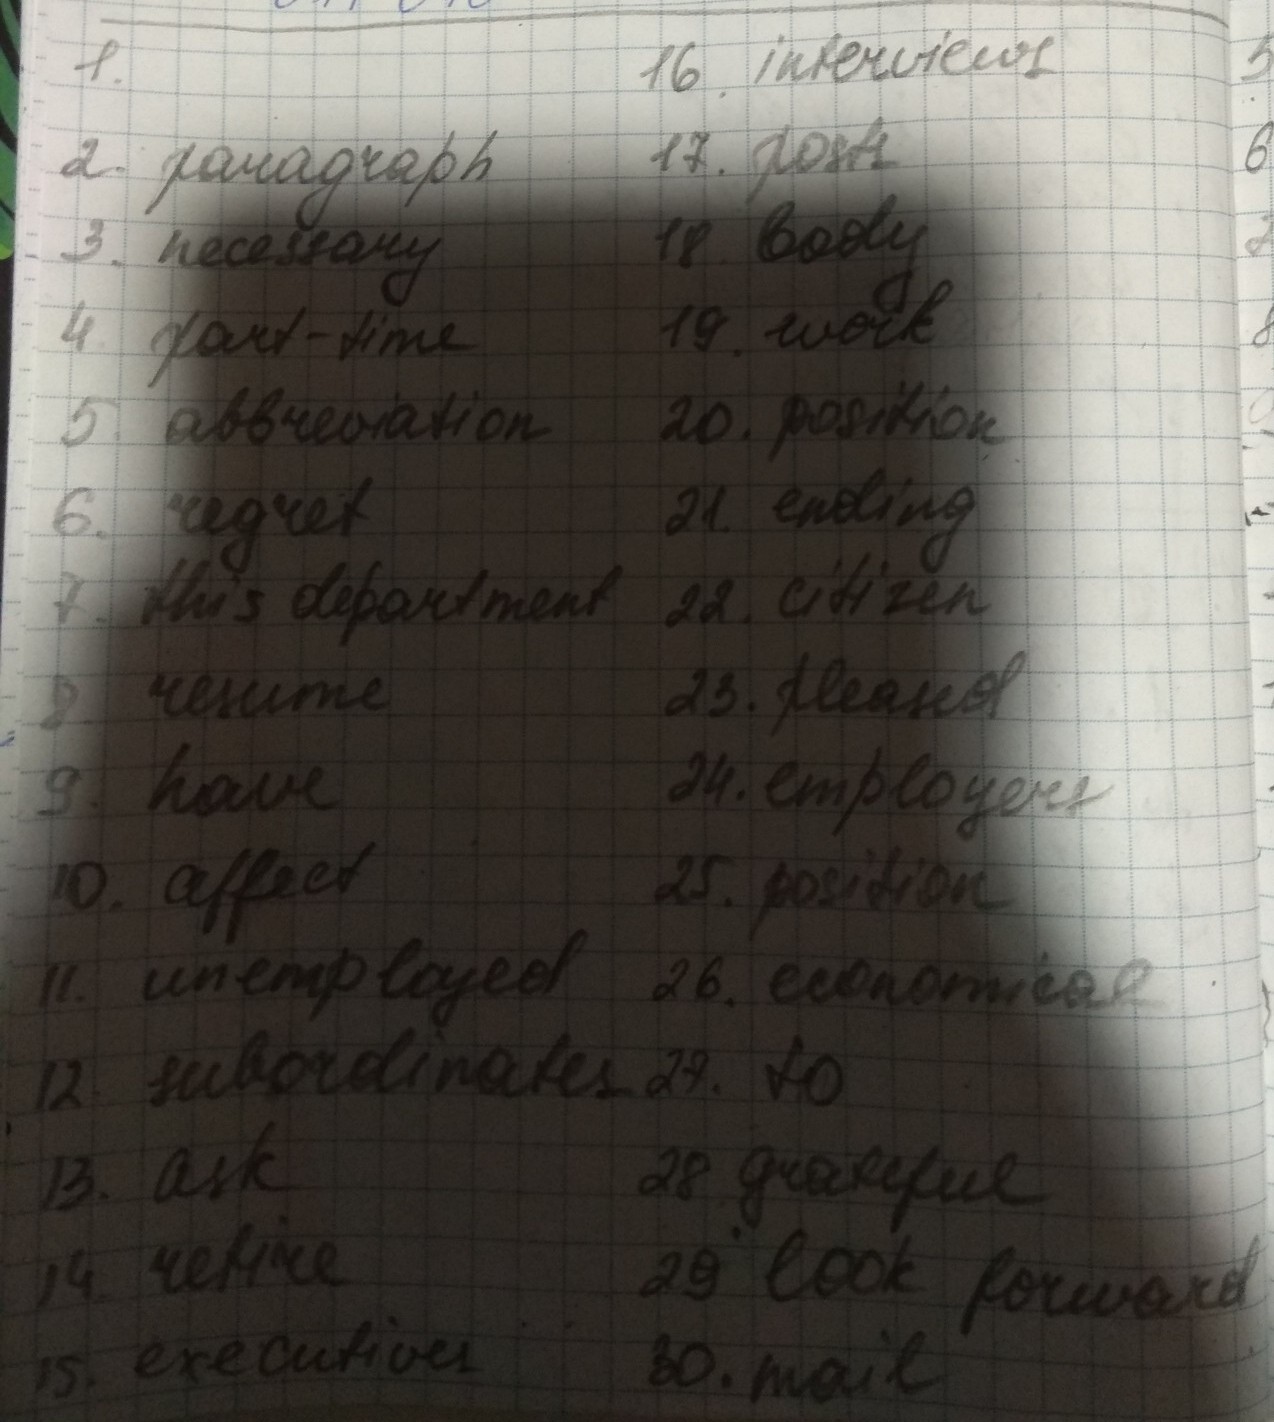 1.
2. paragraph
3. necessary
4. part-time
5. abbreviation
6. regret
7. this department
8. resume
9. have
10. affect
11. unemployed
12. subordinates
13. ask
14. retire
15. executives
16. interviews
17. posts
18. body
19. work
20. position
21. ending
22. citizen
23. pleased
24. employers
25. position
26. economical
27. to
28. grateful
29. look forward
30. mail
5
6
7
8